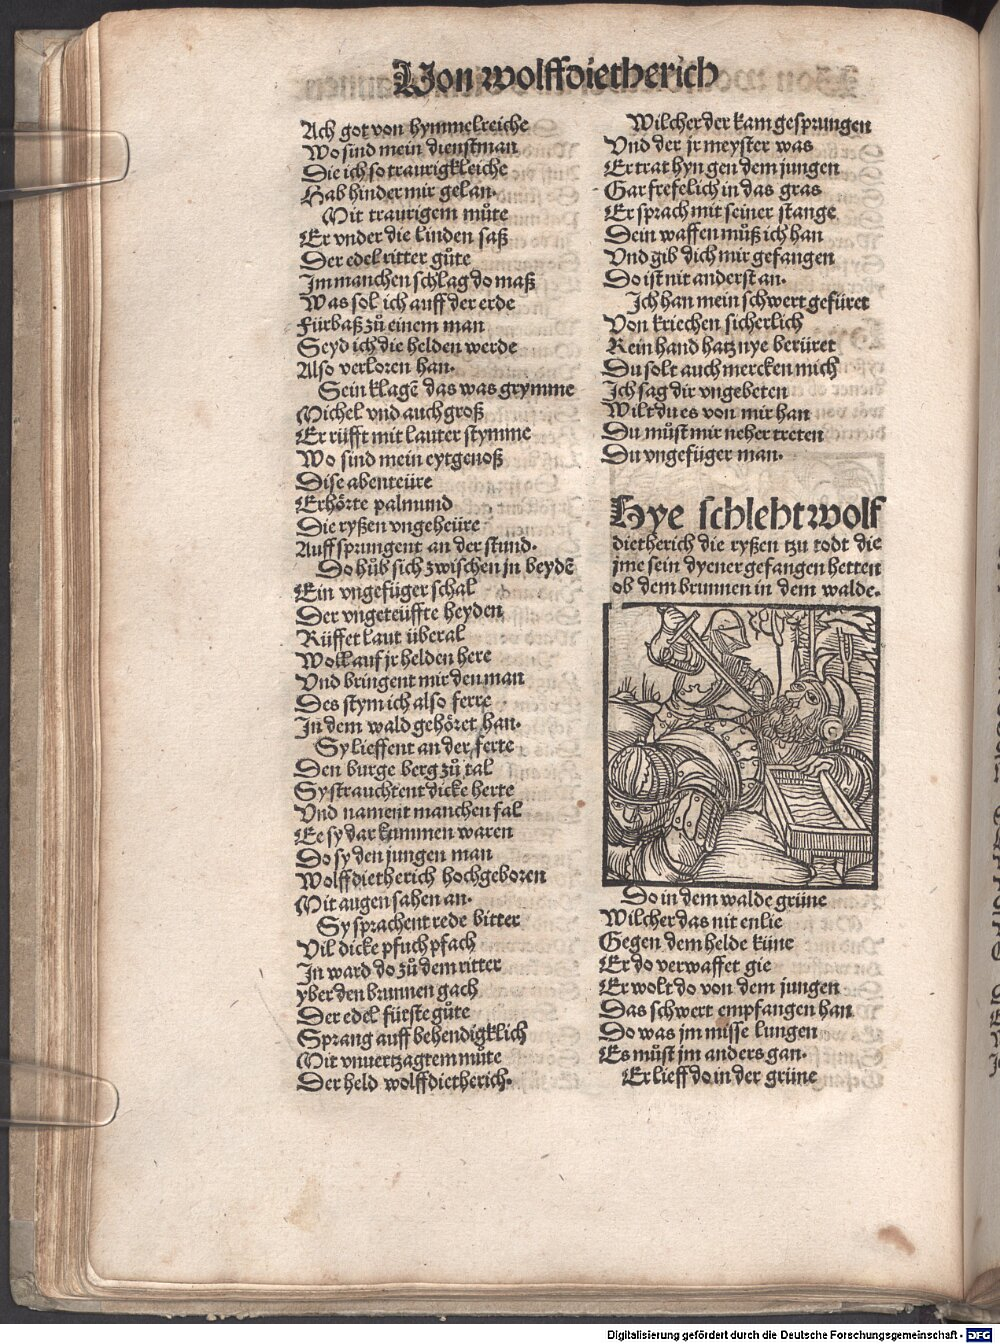 Von wolffdietherich
Ach got von hymmelreiche
Wo sind mein dienstman
Die ich so traurigkleiche
Hab hinder mir gelan.
Mit traurigem můte
Er vnder die linden saß
Der edel ritter gůte
Im manchen schlag do maß
Was sol ich auff der erde
Fürbaß zů einem man
Seyd ich die helden werde
Also verloren han.
Sein klagē das was grymme
Michel vnd auch groß
Er rüfft mit lauter stymme
Wo sind mein eytgenoß
Dise abenteüre
Erhörte palmund
Die ryßen vngeheüre
Auff sprungent an der stund.
Do hůb sich zwischen jn beydē
Ein vngefüger schal
Der vngeteüffte heyden
Rüffet laut überal
Wollauf jr helden here
Vnd bringent mir den man
Des stym ich also ferre
In dem wald gehöret han.
Sy lieffent an der ferte
Den burge berg zů tal
Sy strauchtent dicke herte
Vnd nament manchen fal
Ee sy dar kummen waren
Do sy den jungen man
Wolffdietherich hochgeboren
Mit augen sahen an.
Sy sprachent rede bitter
Vil dicke pfuch pfach
In ward do zů dem ritter
yber den brunnen gach
Der edel fürste gůte
Sprang auff behendigklich
Mit vnuertzagtem můte
Der held wolffdietherich.
Wilcher der kam gesprungen
Vnd der jr meyster was
Er trat hyn gen dem jungen
Gar frefelich in das gras
Er sprach mit seiner stange
Dein waffen můß ich han
Vnd gib dich mir gefangen
Do ist nit anderst an.
Ich han mein schwert gefüret
Von kriechen sicherlich
Kein hand hatz nye berüret
Du solt auch mercken mich
Ich sag dir vngebeten
Wilt du es von mir han
Du můst mir neher treten
Du vngefüger man.
Hye schlehtwolf
dietherich die ryßen tzu todt die
jme sein dyener gefangen hetten
ob dem brunnen in dem walde.
Do in dem walde grüne
Wilcher das nit enlie
Gegen dem helde küne
Er do verwaffet gie
Er wolt do von dem jungen
Das schwert empfangen han
Do was jm misse lungen
Es můst jm anders gan.
Er lieff do in der grüne
Digitalisierung gefördert durch die Deutsche Forschungsgemeinschaft - DFG